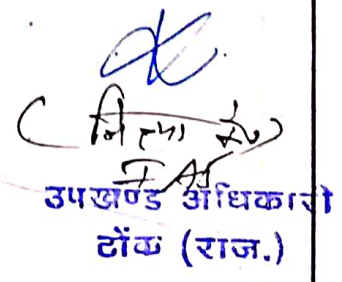 IAS
उपखण्ड अधिकारी
टोंक (राज.)